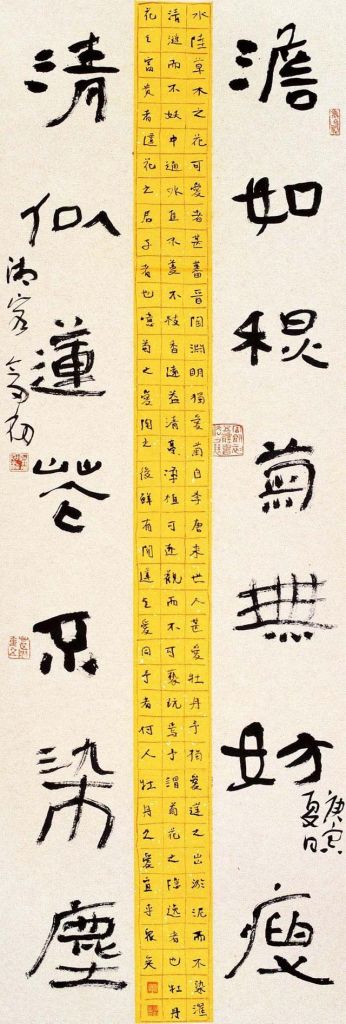 澹如秋菊無妨瘦
庚寅
夏日
水陸草木之花可愛者甚蕃晉陶淵明獨愛菊自李唐來世人甚愛牡丹予獨愛蓮之出淤泥而不染濯
清漣而不妖中通外直不蔓不枝香遠益清亭淨植可遠觀而不可褻玩焉予謂菊花之隱逸者也牡丹
花之富貴者蓮花之君子者也噫菊之愛陶之後鮮有聞蓮之愛同予者何人牡丹之愛宜乎眾矣
清似蓮花不染塵